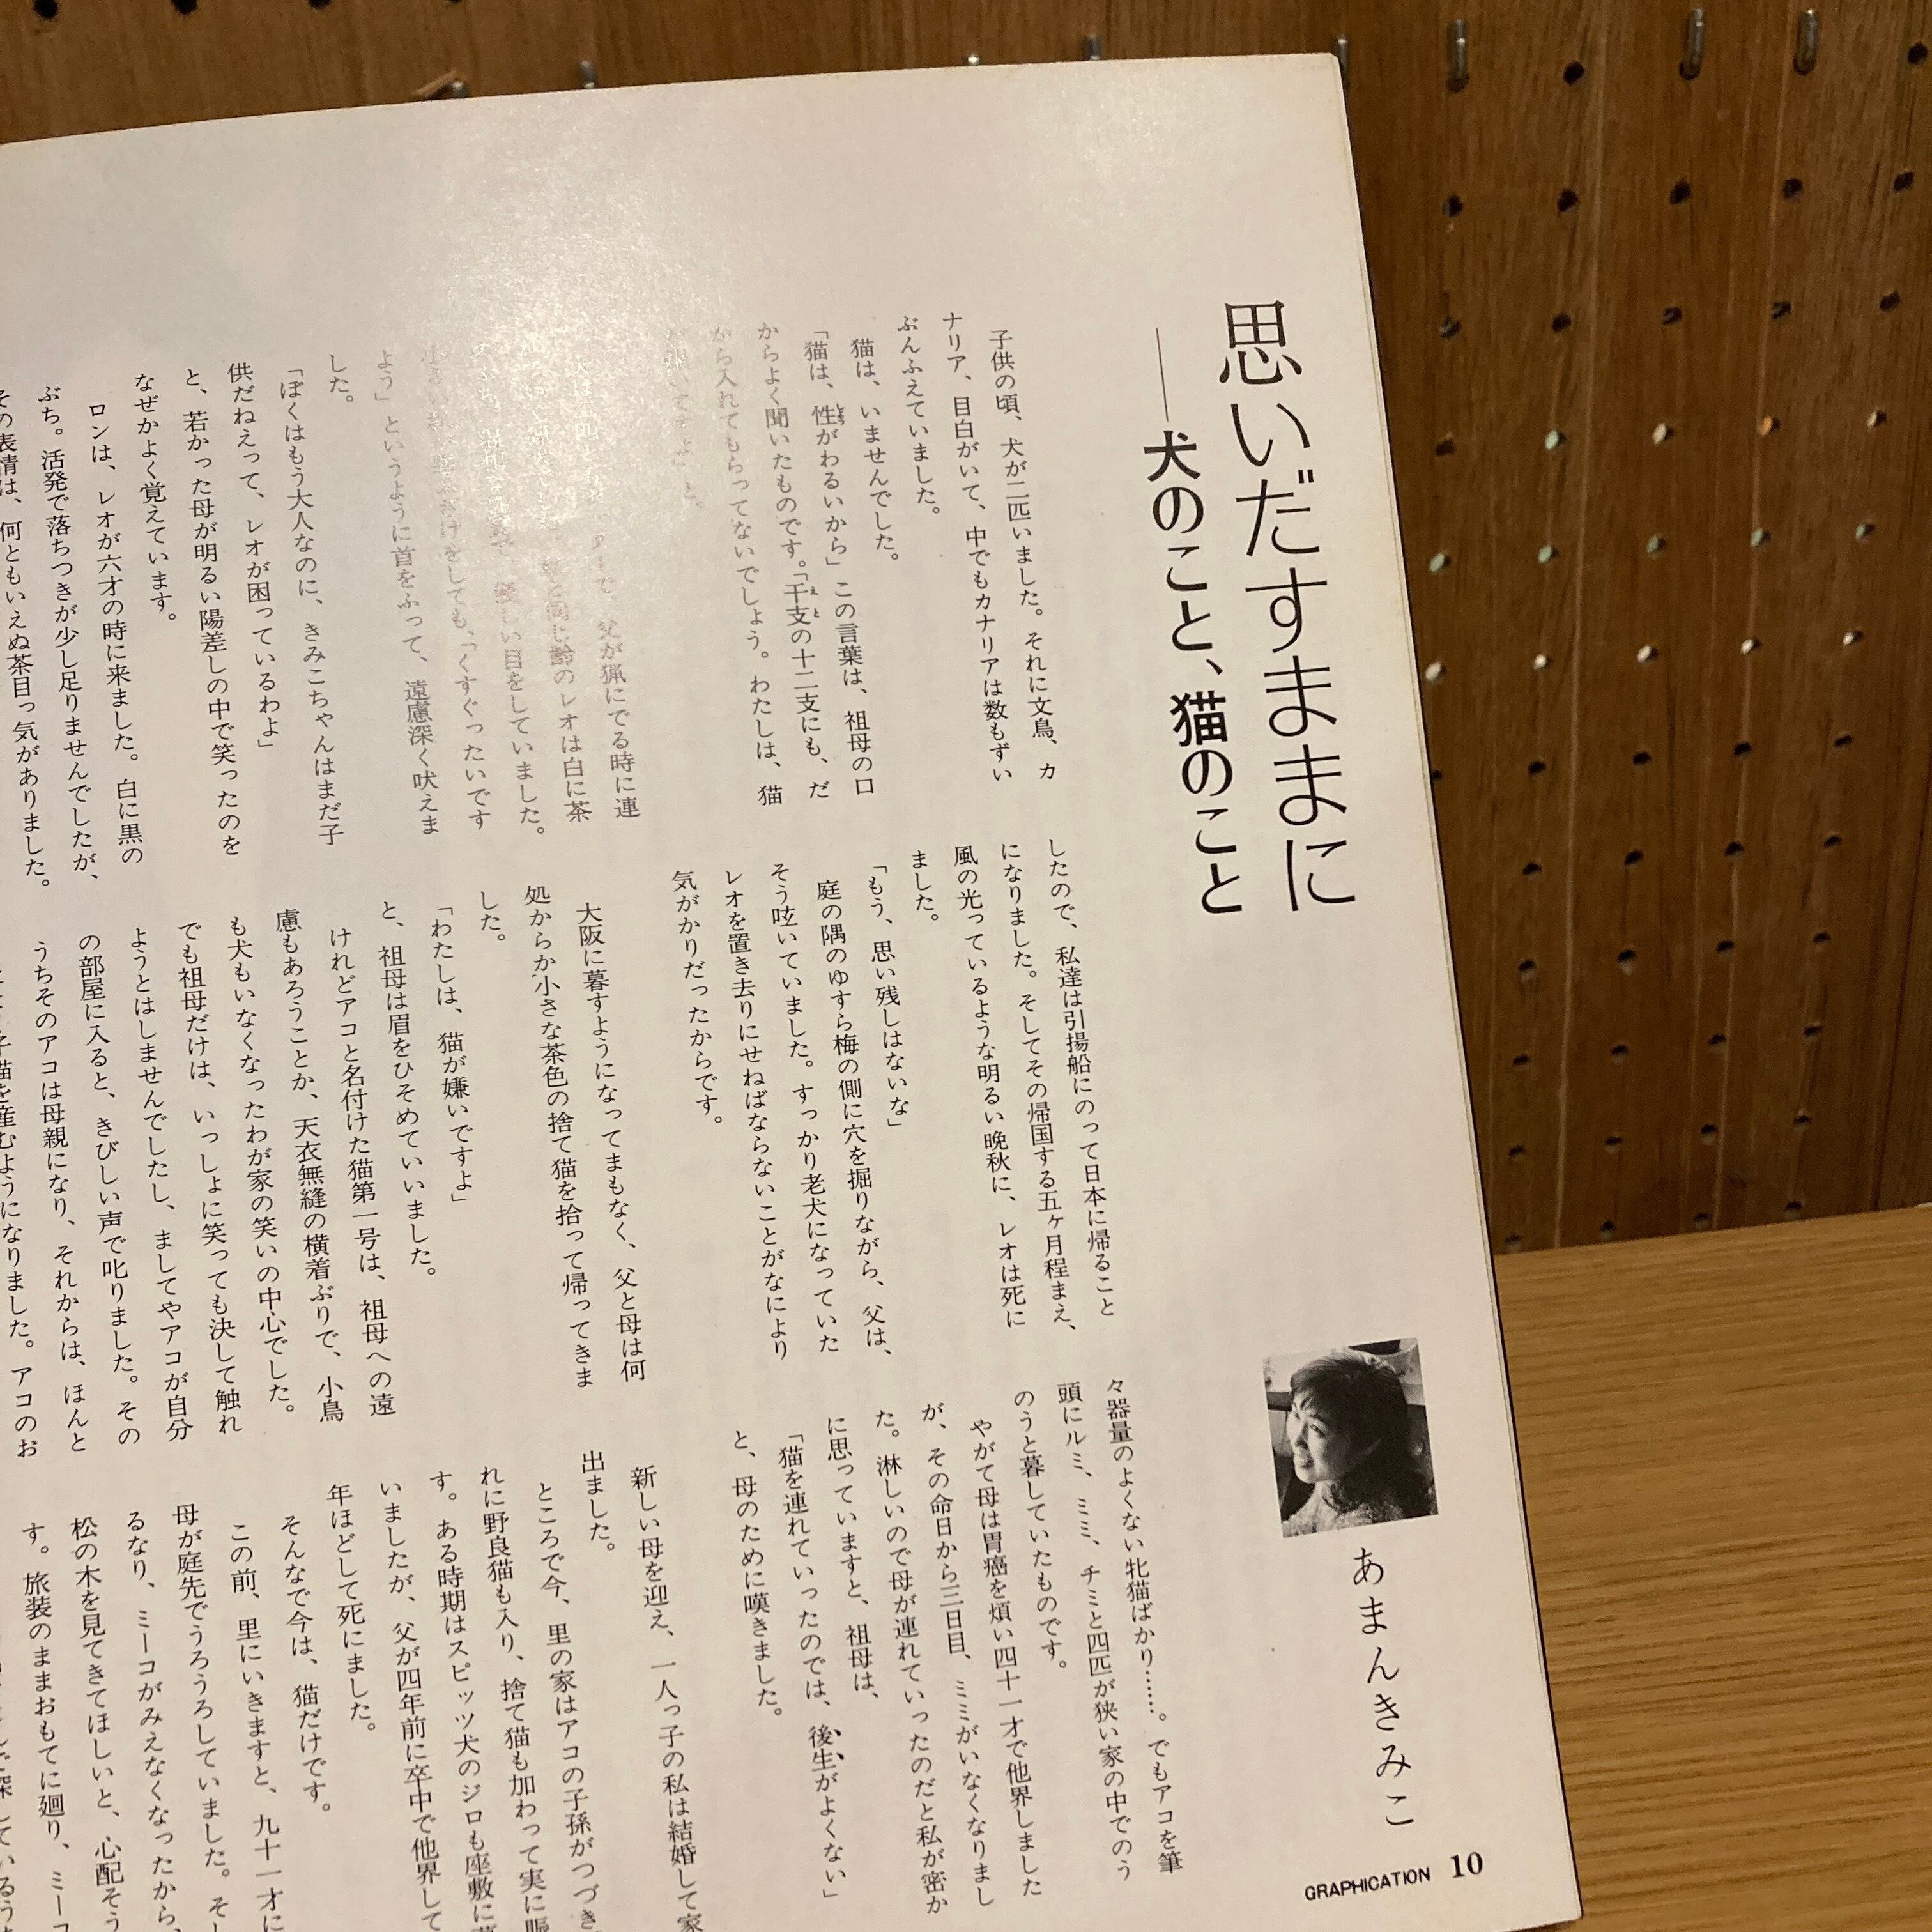 思いだすままに
――犬のこと、猫のこと
あまんきみこ
子供の頃、犬が二匹いました。それに文鳥、カ
ナリア、目白がいて、中でもカナリアは数もずい
ぶんふえていました。
猫は、いませんでした。
「猫は、性がわるいから」この言葉は、祖母の口
からよく聞いたものです。「干支の十二支にも、だ
から入れてもらってないでしょう。わたしは、猫
父が猟にでる時に連
同じ齢のレオは白に茶
優しい目をしていました。
をしても、「くすぐったいです
よう」というように首をふって、遠慮深く吠えま
した。
「ぼくはもう大人なのに、きみこちゃんはまだ子
供だねえって、レオが困っているわよ」
と、若かった母が明るい陽差しの中で笑ったのを
なぜかよく覚えています。
ロンは、レオが六才の時に来ました。白に黒の
ぶち。活発で落ちつきが少し足りませんでしたが、
その表情は、何ともいえぬ茶目っ気がありました。
したので、私達は引揚船にのって日本に帰ること
になりました。そしてその帰国する五ヶ月程まえ、
風の光っているような明るい晩秋に、レオは死に
ました。
「もう、思い残しはないな」
庭の隅のゆすら梅の側に穴を掘りながら、父は、
そう呟いていました。すっかり老犬になっていた
レオを置き去りにせねばならないことがなにより
気がかりだったからです。
大阪に暮すようになってまもなく、父と母は何
処からか小さな茶色の捨て猫を拾って帰ってきま
した。
「わたしは、猫が嫌いですよ」
と、祖母は眉をひそめていいました。
けれどアコと名付けた猫第一号は、祖母への遠
慮もあろうことか、天衣無縫の横着ぶりで、小鳥
も犬もいなくなったわが家の笑いの中心でした。
でも祖母だけは、いっしょに笑っても決して触れ
ようとはしませんでしたし、ましてやアコが自分
の部屋に入ると、きびしい声で叱りました。その
うちそのアコは母親になり、それからは、ほんと
子猫を産むようになりました。アコのお
々器量のよくない牝猫ばかり……。でもアコを筆
頭にルミ、ミミ、チミと四匹が狭い家の中でのう
のうと暮していたものです。
やがて母は胃癌を煩い四十一才で他界しました
が、その命日から三日目、ミミがいなくなりまし
た。淋しいので母が連れていったのだと私が密か
に思っていますと、祖母は、
「猫を連れていったのでは、後生がよくない」
と、母のために嘆きました。
新しい母を迎え、一人っ子の私は結婚して家
出ました。
ところで今、里の家はアコの子孫がつづき、
れに野良猫も入り、捨て猫も加わって実に賑
す。ある時期はスピッツ犬のジロも座敷に
いましたが、父が四年前に卒中で他界して
年ほどして死にました。
そんなで今は、猫だけです。
この前、里にいきますと、九十一才に
母が庭先でうろうろしていました。そし
るなり、ミーコがみえなくなったから、
松の木を見てきてほしいと、心配そう
す。旅装のままおもてに廻り、ミーコ
GRAPHICATION 10